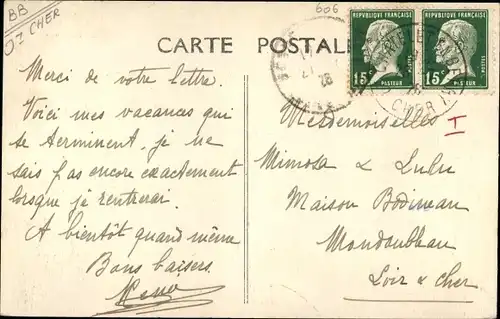 BB
J= CHER
606
CARTE POSTALE
RÉPUBLIQUE FRANÇAISE
15c
PASTEUR
POSTES
RÉPUBLIQUE FRANÇAISE
15c
PASTEUR
POSTES
CHER
Merci de votre lettre.
Voici mes vacances qui
se terminent, je ne
sais pas encore exactement
lorsque je rentrerai.
A bientôt quand même
Bons baisers
Mesdemoiselles
I
Mimosa & Lulu
Maison Bodineau
Mondoubleau
Loir & cher